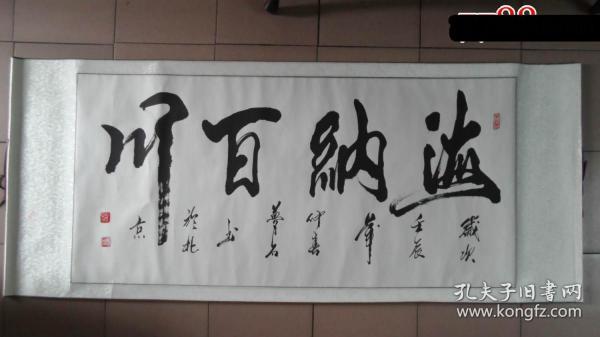 海納百川
歲次
壬辰
年
仲春
夢石
书
於北
京
孔夫子旧书网
www.kongfz.com